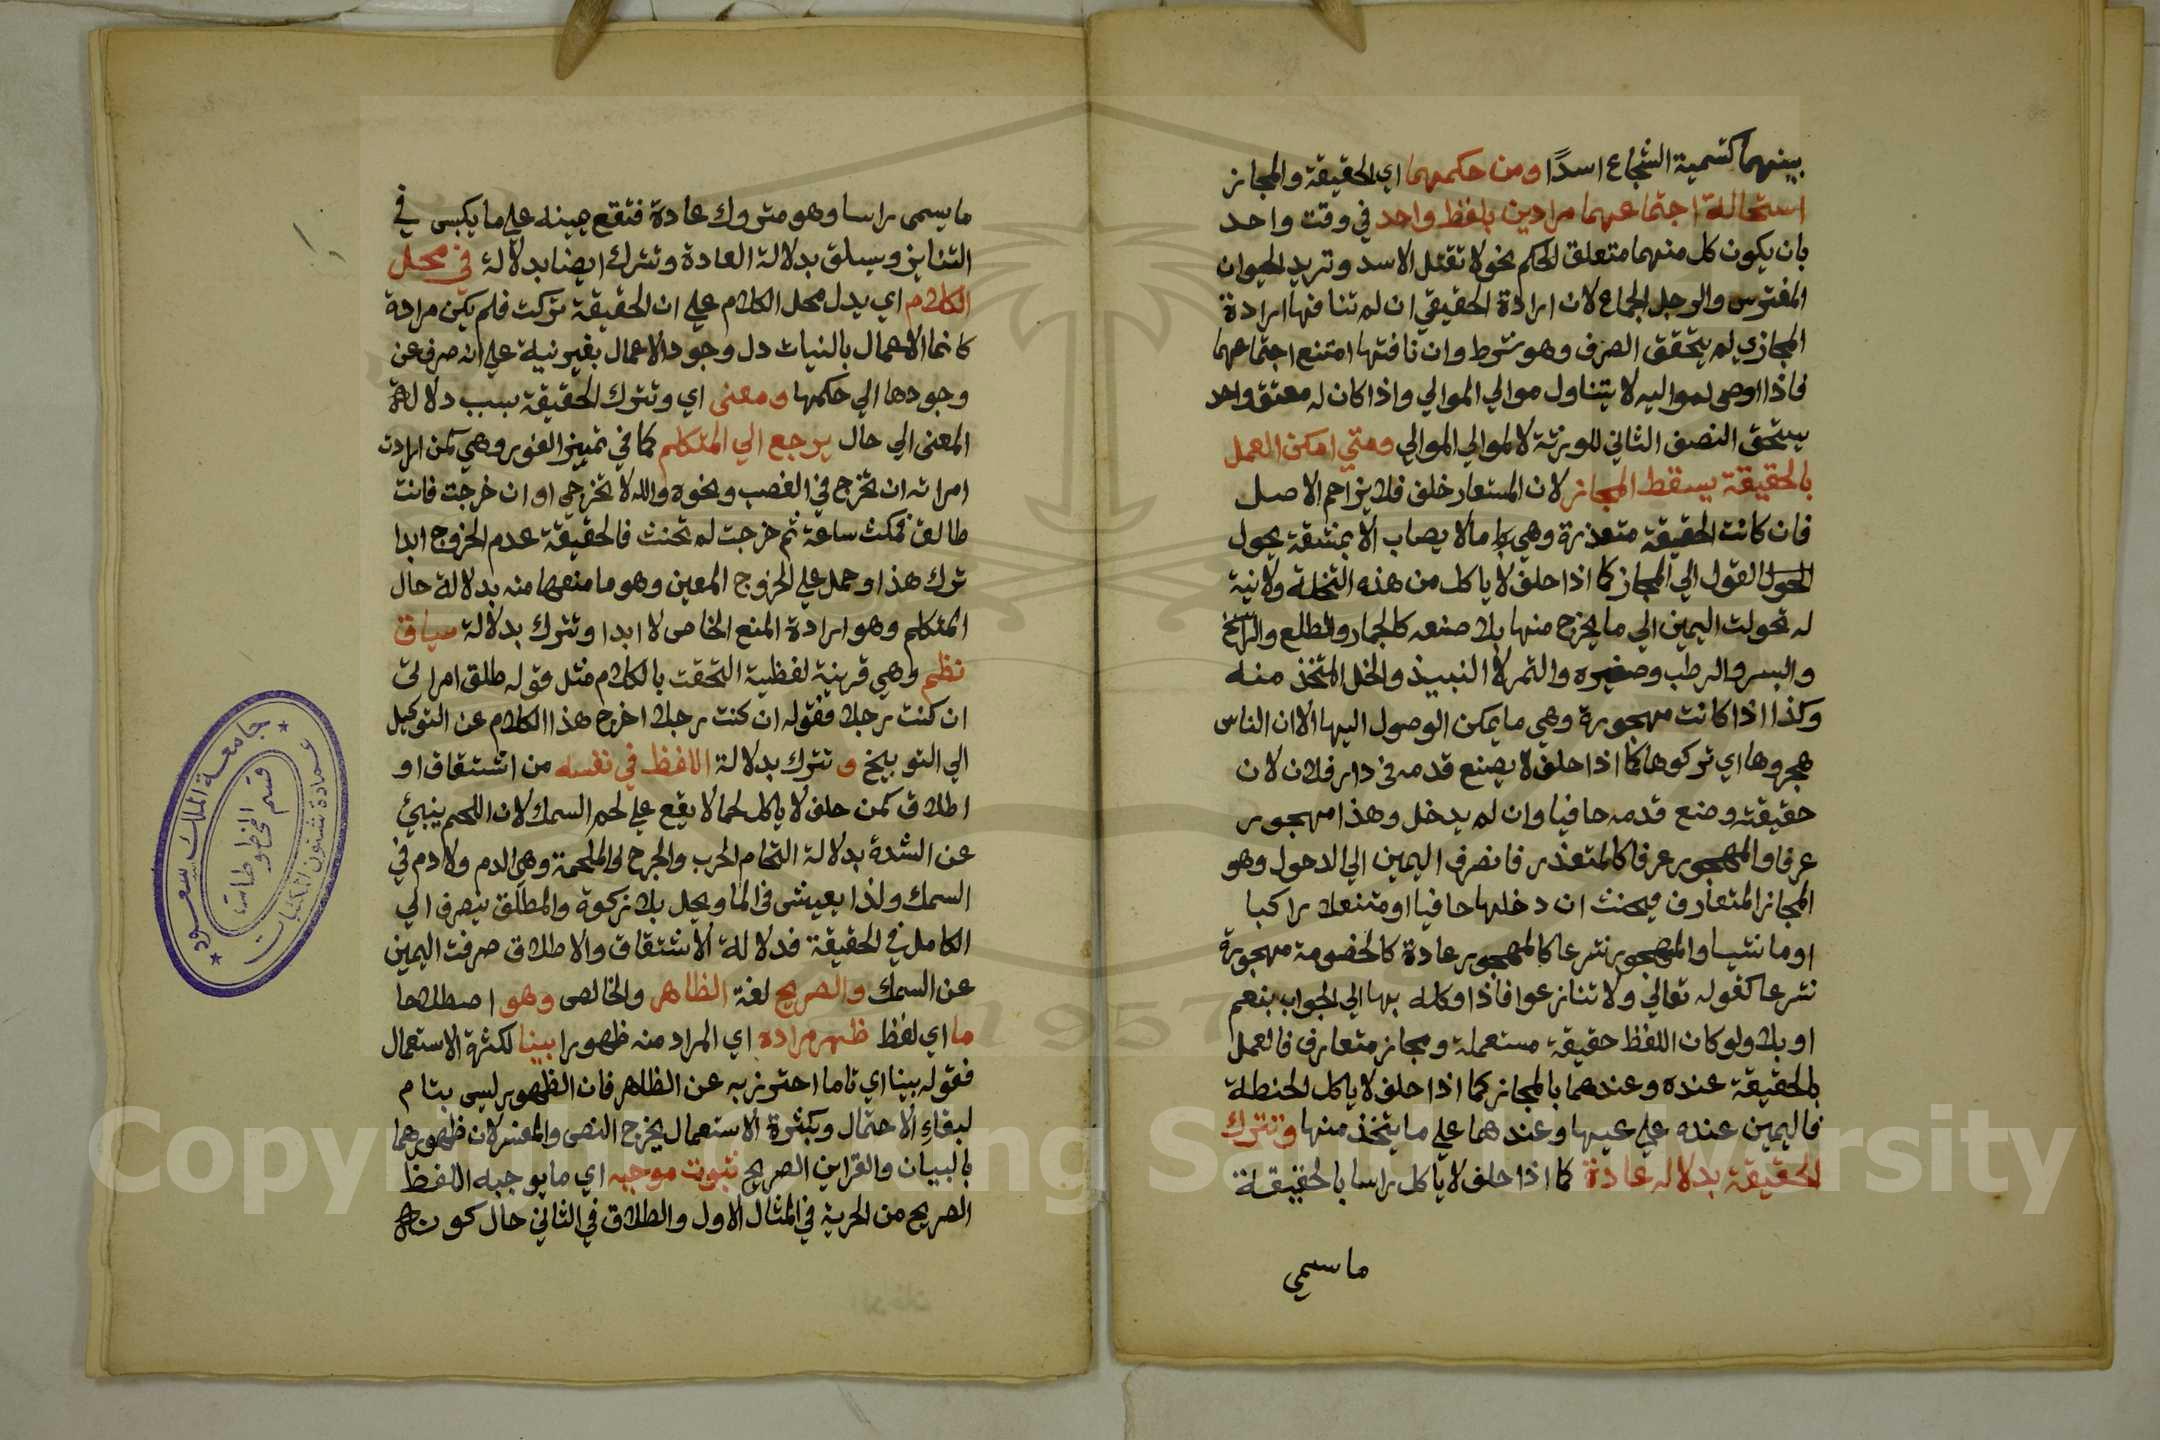 بينهما كتسمية الشجاع اسدًا ومن حكمهما اي الحقيقة والمجاز
استحالة اجتماعهما مرادين بلفظ واحد في وقت واحد
بان يكون كل منهما متعلق الحكم نحو لا تقتل الاسد وتريد الحيوان
المفترس والرجل الشجاع لان ارادة الحقيقي ان لم تنافها ارادة
المجازي لم يتحقق الصرف وهو شرط وان نافتها امتنع اجتماعهما
فاذا اوصى لمواليه لا يتناول موالي الموالي واذا كان له معتق واحد
يستحق النصف الثاني للورثة لا لموالي الموالي ومتي امكن العمل
بالحقيقة يسقط المجاز لان المستعار خلف فلا يزاحم الاصل
فان كانت الحقيقة متعذرة وهي ما لا يصاب الا بمشقة يحول
القول الي المجاز كما اذا حلف لا ياكل من هذه النخلة ولا نية
له تحولت اليمين الي ما يخرج منها بلا صنعه كالجمار والطلع والبلح
والبسر والرطب وصقره والتمر لا النبيذ والخل المتخذ منه
وكذا اذا كانت مهجورة وهي ما يمكن الوصول اليها الا ان الناس
هجروها اي تركوها كما اذا حلف لا يضع قدمه في دار فلان لان
حقيقته وضع قدمه حافيا وان لم يدخل وهذا مهجور
عرفا والمهجور عرفا كالمتعذر فانصرف اليمين الي الدخول وهو
المجاز المتعارف فيحنث ان دخلها حافيا او متنعلا راكبا
او ماشيا والمهجور شرعا كالمهجور عادة كالخصومة مهجورة
شرعا كقوله تعالي ولا تنازعوا فاذا وكله بها الي الجواب بنعم
او بلا ولو كان اللفظ حقيقة مستعملة ومجاز متعارف فالعمل
بالحقيقة عنده وعندهما بالمجاز كما اذا حلف لا ياكل الحنطة
فاليمين عنده علي عينها وعندهما علي ما يتخذ منها وتترك
الحقيقة بدلالة عادة كما اذا حلف لا ياكل راسا بالحقيقة
ما سيمي
ما يسمى راسا وهو متروك عادة فتقع يمينه علي ما يكبس في
التنانير ويسلق بدلالة العادة وتترك ايضا بدلالة في محل
الكلام اي يدل محل الكلام علي ان الحقيقة تركت فلم يكن مرادة
كانما الاعمال بالنيات دل وجود الاعمال بغير نية علي انه صرف عن
وجودها الي حكمها ومعنى اي وتترك الحقيقة بسبب دلالة
المعنى الي حال يرجع الي المتكلم كما في يمين الفور وهي كمن ارادت
امراته ان تخرج في الغضب ونحوه والله لا تخرجي او ان خرجت فانت
طالق فمكث ساعة ثم خرجت لم تحنث فالحقيقة عدم الخروج ابدا
ترك هذا وحمل علي الخروج المعين وهو ما منعها منه بدلالة حال
المتكلم وهو ارادة المنع الخاص لا ابدا وتترك بدلالة سياق
نظم وهي قرينة لفظية التحقت بالكلام مثل قوله طلق امراتي
ان كنت رجلا فقوله ان كنت رجلا اخرج هذا الكلام عن التوكيل
الي التوبيخ و تترك بدلالة اللفظ في نفسه من اشتقاق او
اطلاق كمن حلف لا ياكل لحما لا يقع علي لحم السمك لان اللحم ينبئ
عن الشدة بدلالة التحام الحرب والجرح والملحمة وهي الدم ولا دم في
السمك ولذا يعيش في الما ويحل بلا زكوة والمطلق ينصرف الي
الكامل في الحقيقة فدلالة الاشتقاق والاطلاق صرفت اليمين
عن السمك والصريح لغة الظاهر والخالص وهو اصطلاحا
ما اي لفظ ظهر مراده اي المراد منه ظهورا بينا لكثرة الاستعمال
فقوله بينا اي تاما احترز به عن الظاهر فان الظهور ليس بتام
لبقاء الاحتمال وبكثرة الاستعمال يخرج النص والمفسر لان ظهورهما
بالبيان والقراين الصريح ثبوت موجبه اي ما يوجبه اللفظ
الصريح من الحرية في المثال الاول والطلاق في الثاني حال كون
جامعة الملك سعود
عمادة شئون المكتبات
قسم المخطوطات
Copyright © King Saud University
1957